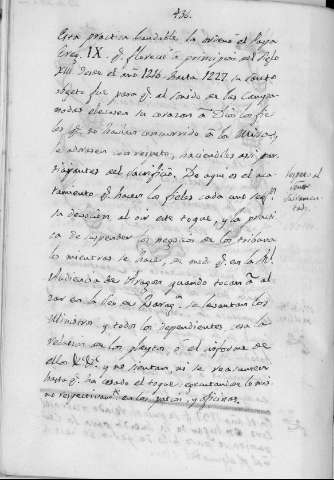 430.
Esta practica laudable la ordenó el Papa
Greg.º IX. q.e floreció á principios del Siglo
XIII. desde el año 1216. hasta 1227. su santo
objeto fue para q.e al sonido de las Campa-
nadas elevasen su corazon á Dios los fie-
les q.e no havian concurrido á la Misa, y
le adorasen con respeto, haciendose asi par-
ticipantes del sacrificio. De aqui es el aca-
tamiento q.e hacen los fieles cada uno seg.n
su devocion al oir este toque, y la practi-
ca de suspender los negocios en los tribuna
les mientras se hace, de modo q.e en la R.l
Audiencia de Aragon quando tocan á al
zar en la Seo de Zarag.a se levantan los
Ministros y todos los dependientes, cesa la
relacion en los pleytos, ó el informe de
ellos y no se sientan, ni se reasumen
hasta q.e ha cesado el toque, executandose lo mis-
mo respectivam.te en los patios, y oficinas.
Respeto al
toque
Sacramen-
tado.